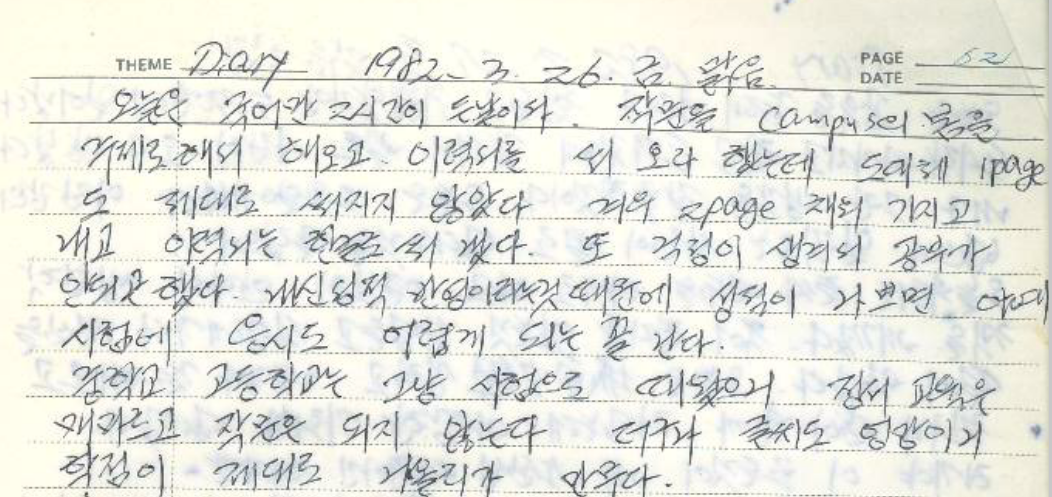 THEME Diary 1982. 3. 26. 금. 맑음 PAGE 52
DATE
오늘은 국어만 2시간이 든날이다. 작문을 campus의 봄을
주제로해서 해오고. 이력서를 써 오라 했는데 도대체 1page
도 제대로 써지지 않았다 겨우 2page 채워 가지고
내고 이력서는 한글로 써 냈다. 또 걱정이 생겨서 공부가
안되곤 했다. 내신성적 반영이라는것 때문에 성적이 나쁘면 아예
시험에 응시도 어렵게 되는 꼴 같다.
중학교 고등학교는 그냥 시험으로 때웠으니 정서 교육은
메마르고 작문은 되지 않는다 더구나 글씨도 엉망이니
학점이 제대로 나올리가 만무다.